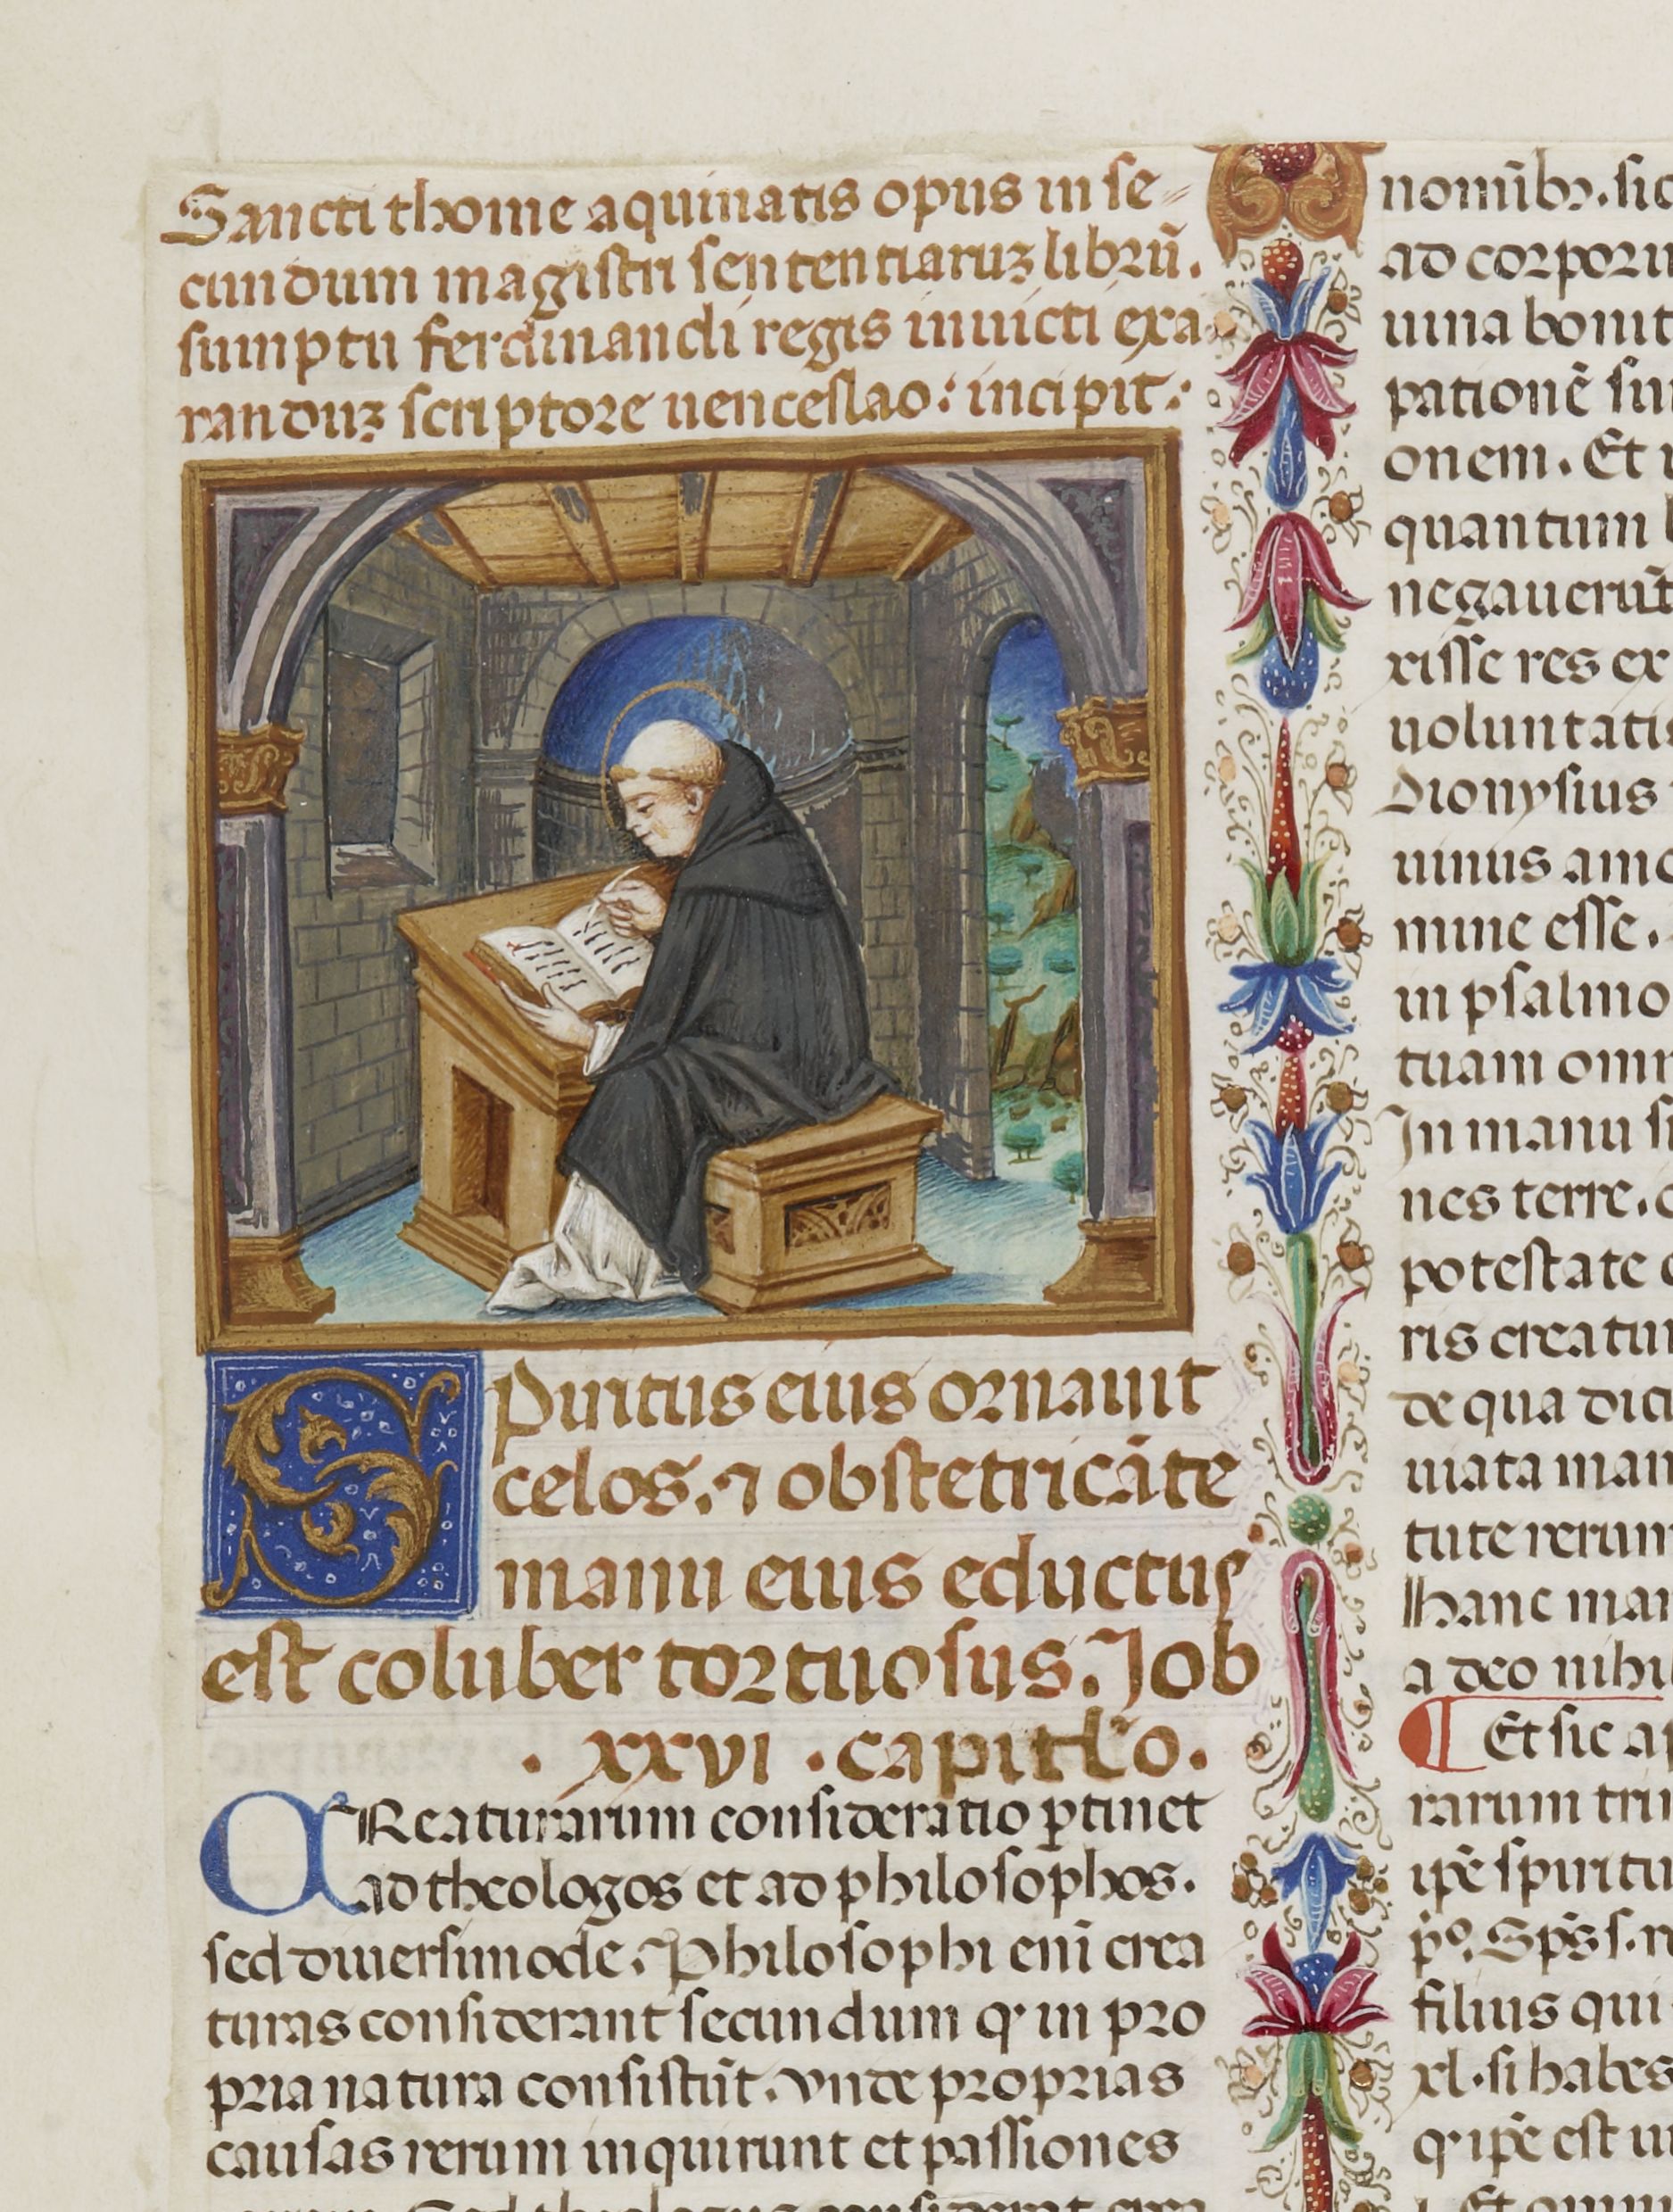 Sancti thome aquinatis opus in se
cundum magistri sententiaruz librū.
sumptu ferdinandi regis inuicti exa
randuz scriptore uenceslao: incipit:
SPiritus eius ornauit
celos. ⁊ obstetricāte
manu eius eductus
est coluber tortuosus. Job
. xxvi . capitl̄o.
CReaturarum consideratio ꝑtinet
ad theologos et ad philosophos.
sed diuersimode. Philosophi eni crea
turas considerant secundum ꝙ in pro
pria natura consistūt. vnde proprias
causas rerum inquirunt et passiones
nomībꝫ. sic
ad corporu
uina bonit
patione
onem. Et
quantum
negauerūt
xisse res ex
uoluntati
Dionysius
uinus amo
nine esse.
in psalmo
tuam omn
In manu
nes terre.
potestate
ris creatur
de qua dici
mata man
tute rerum
hanc man
a deo nihi
¶ Et sic a
rarum
ip̄e spiritu
p̄º. Sp̄s s.
filius qui
xl. si habes
ꝙ ip̄e est